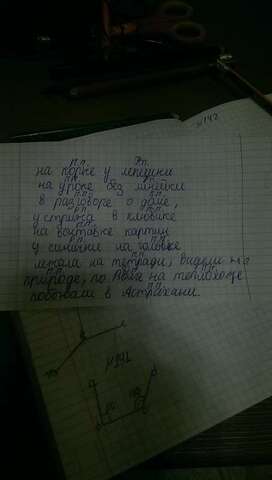 №142
на полке у лепешки
на уроке без линейки
в разговоре о даче,
у стрижа в клювике
на выставке картин
у синички на головке
лежала на тетради, видели на
природе, по Волге на теплоходе
побывали в Астрахани.
№141